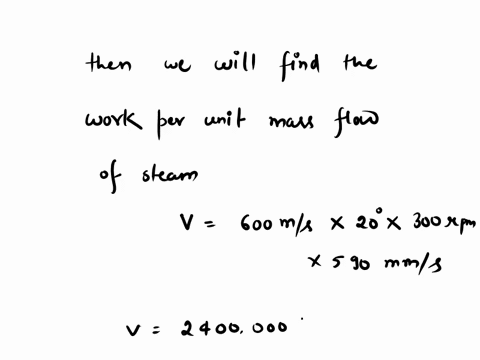 then we will find the
work per unit mass flow
of steam
V = 600 m/s × 20° × 300 rpm
× 590 mm/s
v = 2400.000